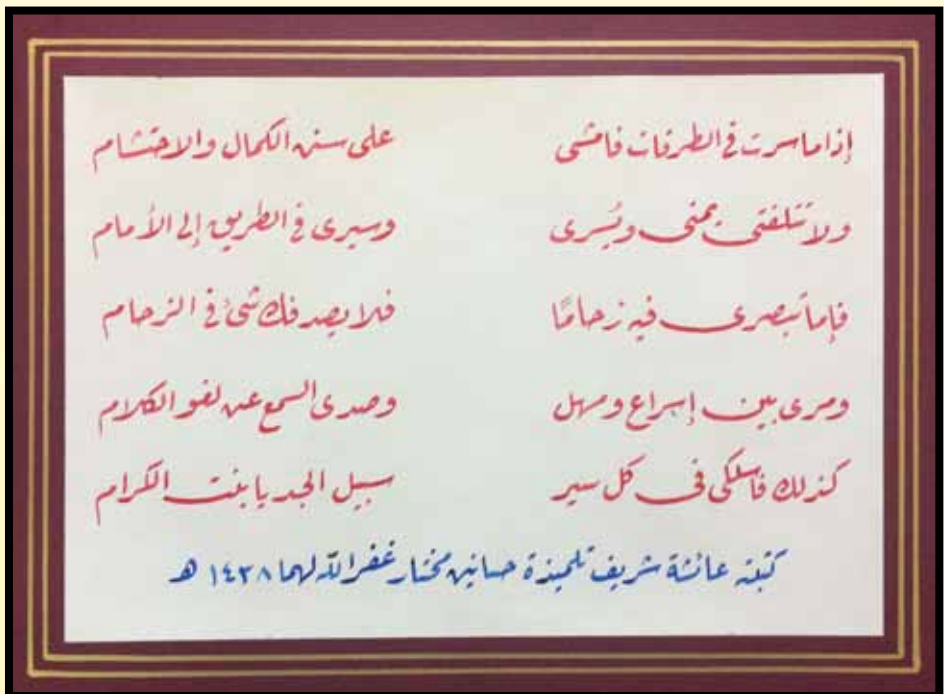 إذا ما سرت في الطرقات فامشى على سنن الكمال والاحتشام
ولا تتلفتى يمنى ويُسرى وسيرى في الطريق إلى الأمام
فإما تبصرى فيه زحامًا فلا يصدفك شئ في الزحام
ومرى بين إسراع ومهل وصدى السمع عن لغو الكلام
كذلك فاسلكى فى كل سير سبيل الجد يا بنت الكرام
كتبته عائشة شريف تلميذة حسانين مختار غفر الله لهما ١٤٣٨ هـ